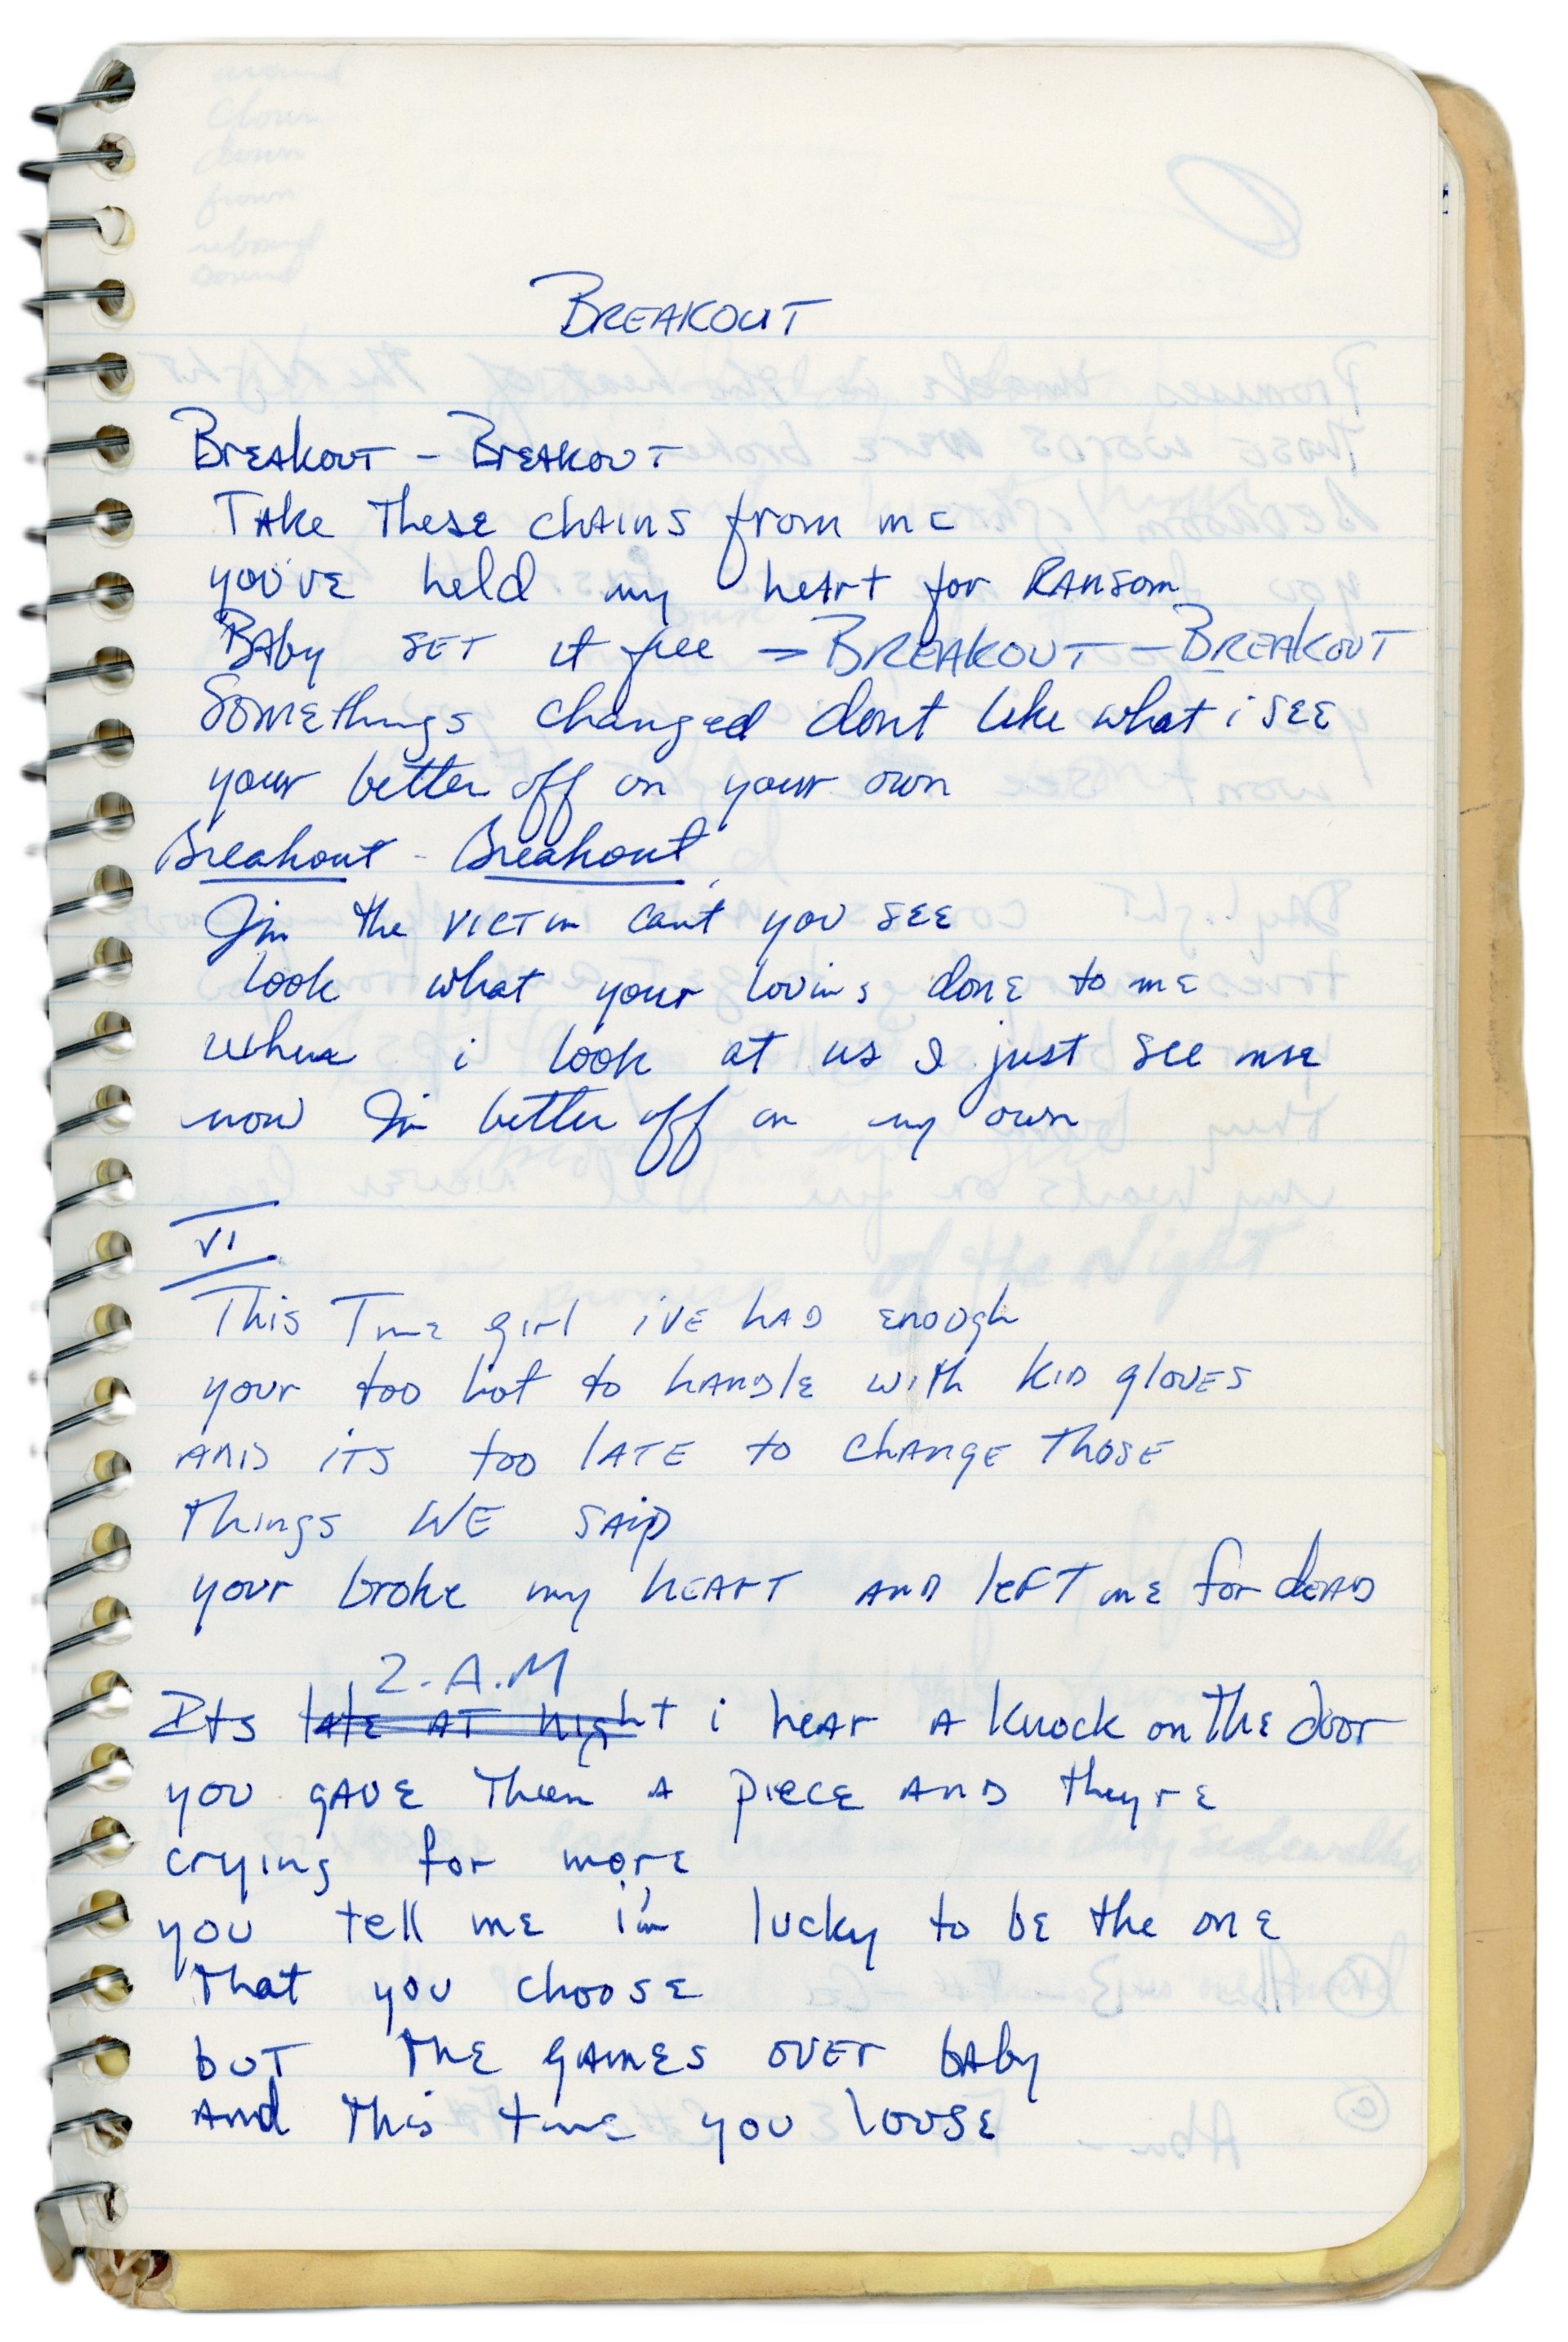 BREAKOUT
Breakout - Breakout
Take these chains from me
you've held my heart for Ransom
Baby set it free → BREAKOUT - BREAKOUT
Somethings changed dont like what i see
your better off on your own
Breakout - Breakout
I'm the victim cant you see
look what your lovins done to me
when i look at us I just see me
now I'm better off on my own
VI
This Time girl ive had enough
your too hot to handle with kid gloves
and its too late to change those
things WE said
your broke my heart and left me for dead
2.A.M
Its late at night i hear a knock on the door
you gave them a piece and theyre
crying for more
you tell me i'm lucky to be the one
that you choose
but the games over baby
and this time you loose